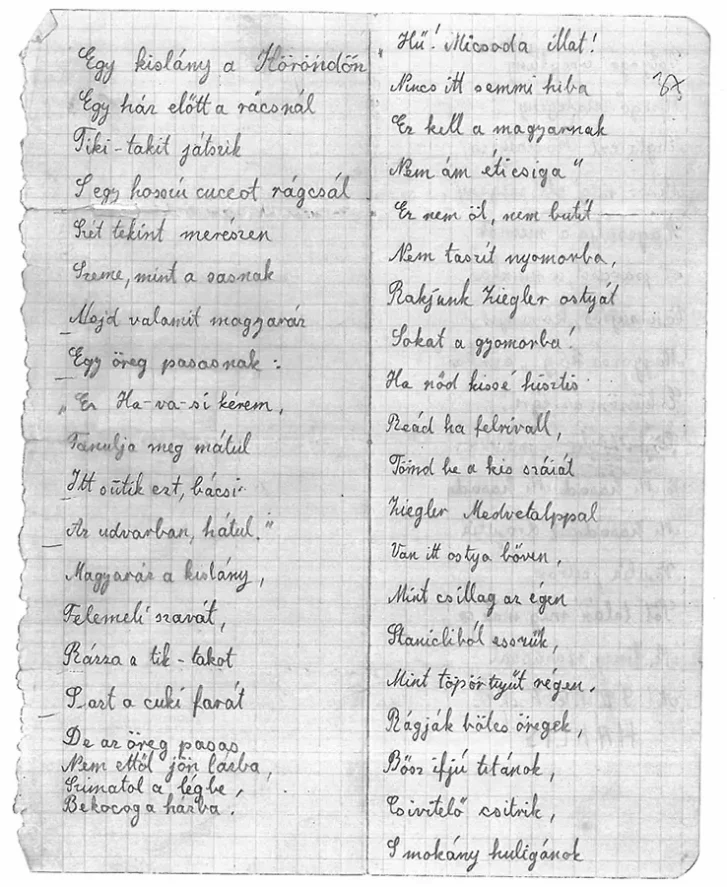 Egy kislány a Höröndőn
Egy ház előtt a rácsnál
Tiki-takit játszik
S egy hosszú cuccot rágcsál
Szét tekint merészen
Szeme, mint a sasnak
Majd valamit magyaráz
Egy öreg pasasnak:
„Ez Ha-va-si kérem,
Tanulja meg mátul
Itt sütik ezt, bácsi
Az udvarban, hátul."
Magyaráz a kislány,
Felemeli szavát,
Rázza a tik-takot
S azt a cuki farát
De az öreg pasas
Nem ettől jön lázba,
Szimatol a légbe,
Bekocog a házba.
Hű! Micsoda illat!
Nincs itt semmi hiba
Ez kell a magyarnak
Nem ám éticsiga"
Ez nem öl, nem butít
Nem taszít nyomorba,
Rakjunk Ziegler ostyát
Sokat a gyomorba!
Ha nőd kissé hisztis
Reád ha felrivall,
Tömd be a kis száját
Ziegler Medvetalppal
Van itt ostya bőven,
Mint csillag az égen
Stanicliból esszük,
Mint töpörtyűt régen.
Rágják bölcs öregek,
Bősz ifjú titánok,
Csivitelő csitrik,
S mokány huligánok